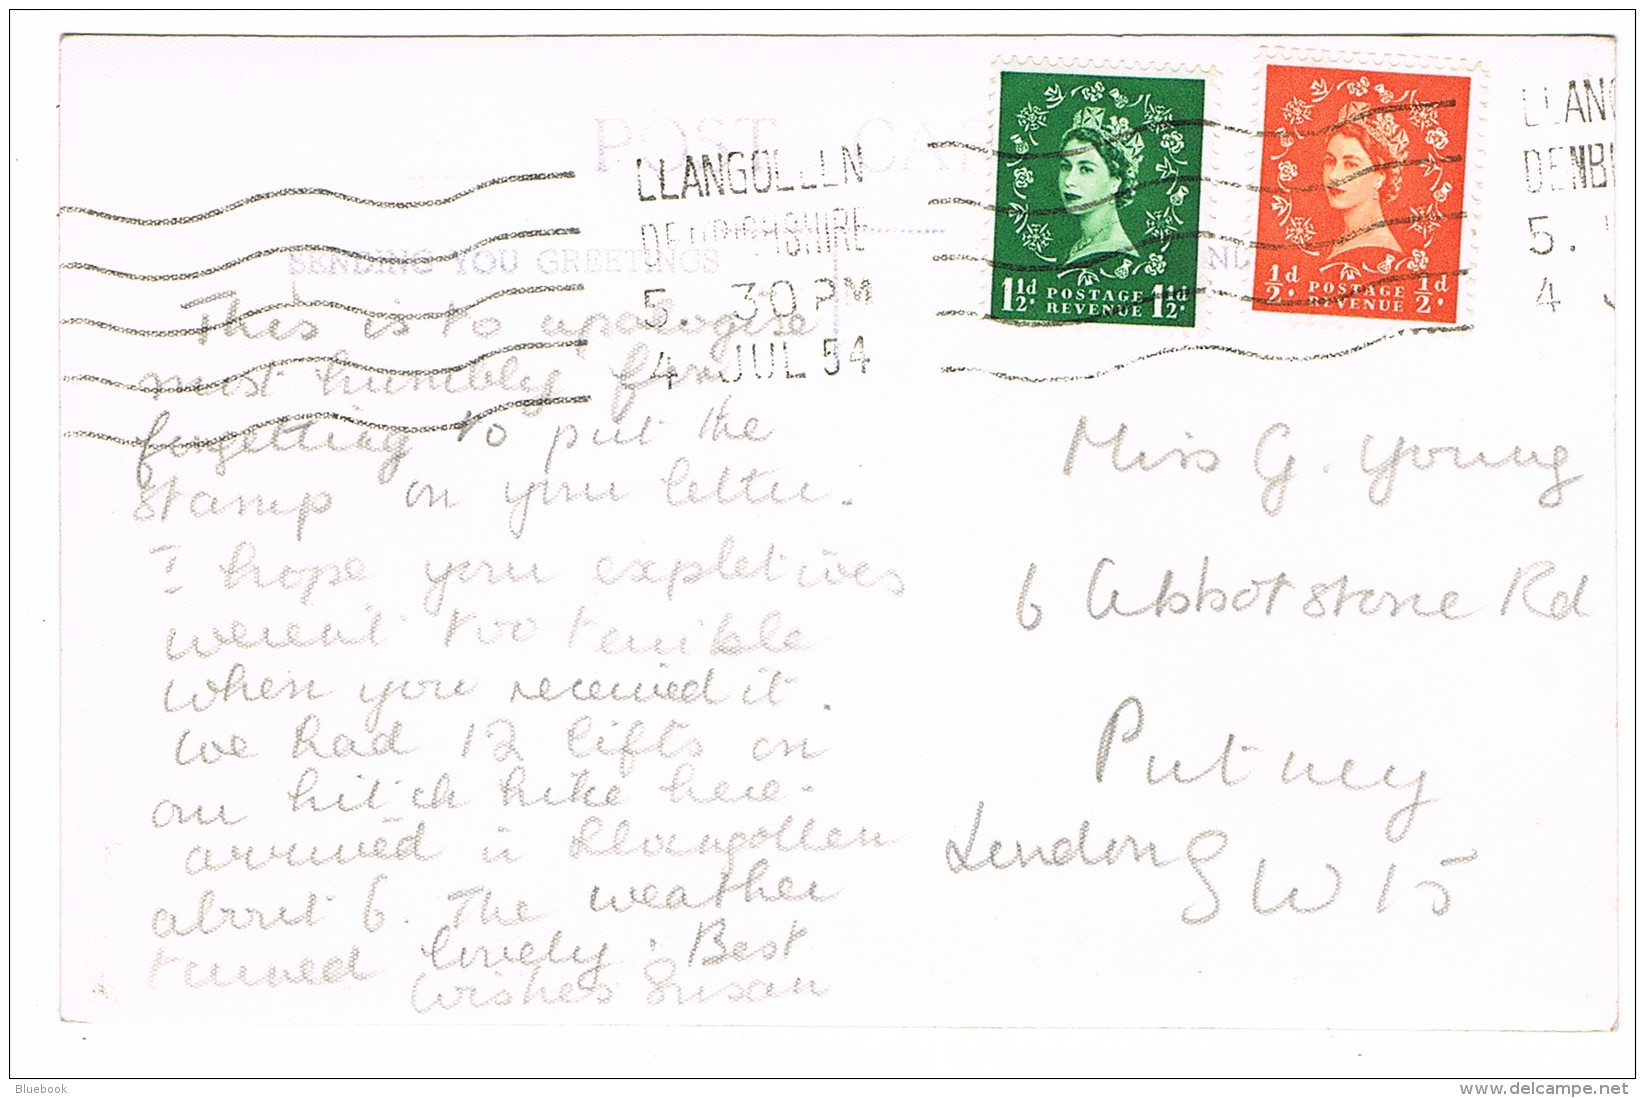 POST CA
LLANGOLLEN
DENBIGHSHIRE
5. 30 PM
4 JUL 54
LLANG
DENBI
5.
4
SENDING YOU GREETINGS
1½d POSTAGE 1½d
REVENUE
½d POSTAGE ½d
REVENUE
This is to apologise
most humbly for
forgetting to put the
stamp on your letter.
I hope your expletives
weren't too terrible
when you received it.
We had 12 lifts on
our hitch hike here.
arrived in Llangollen
about 6. The weather
turned lovely. Best
wishes Susan
Miss G. Young
6 Abbotstone Rd
Putney
London SW15
Bluebook
delcampe.net